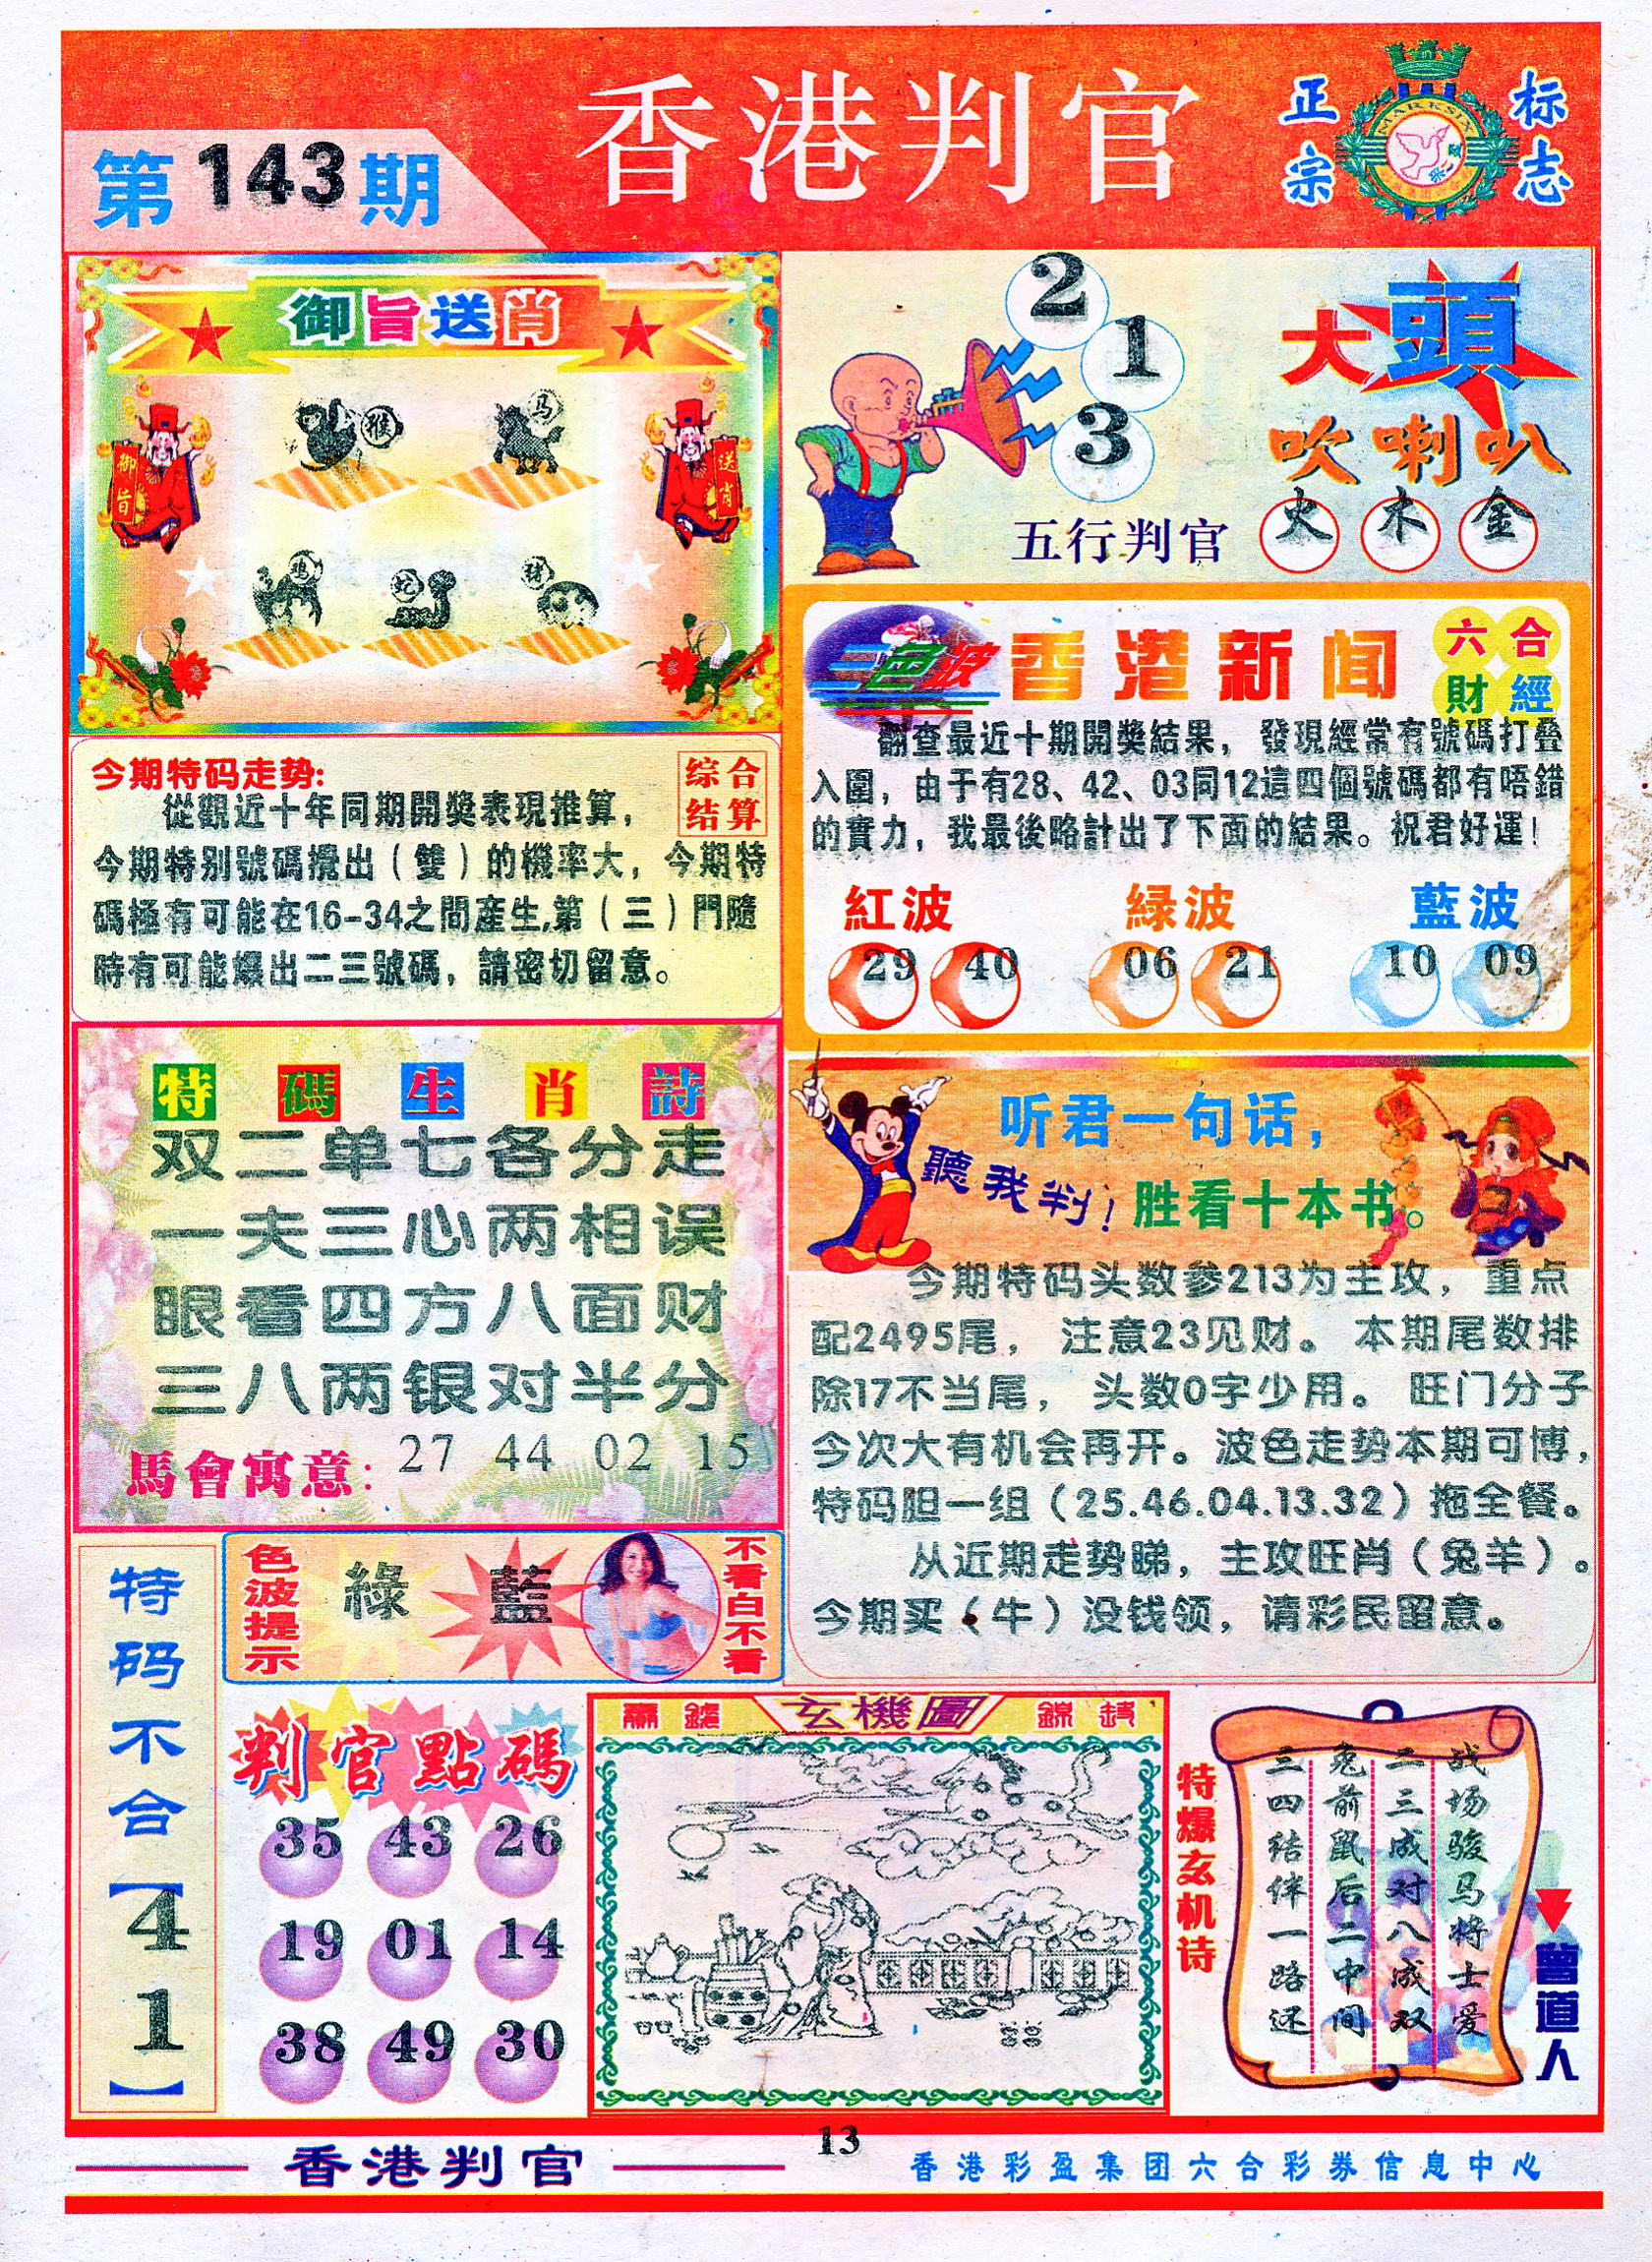 香港判官
正宗
标志
MARK SIX
第143期
御旨送肖
猴
马
御旨
送肖
鸡
蛇
猪
2
1
3
大頭
吹喇叭
五行判官
火 木 金
三色波
香港新闻
六合
財經
翻查最近十期開獎結果，發現經常有號碼打叠
入圍，由于有28、42、03同12這四個號碼都有唔錯
的實力，我最後略計出了下面的結果。祝君好運！
紅波 緑波 藍波
29 40 06 21 10 09
今期特码走势：
综合
结算
從觀近十年同期開獎表現推算，
今期特别號碼攪出（雙）的機率大，今期特
碼極有可能在16-34之間産生，第（三）門隨
時有可能爆出二三號碼，請密切留意。
特碼生肖詩
双二单七各分走
一夫三心两相误
眼看四方八面财
三八两银对半分
馬會寓意：27 44 02 15
听君一句话，
聽我判！
胜看十本书。
今期特码头数参213为主攻，重点
配2495尾，注意23见财。本期尾数排
除17不当尾，头数0字少用。旺门分子
今次大有机会再开。波色走势本期可博，
特码胆一组（25.46.04.13.32）拖全餐。
从近期走势睇，主攻旺肖（兔羊）。
今期买（牛）没钱领，请彩民留意。
特码不合【41】
色波提示
綠 藍
不看白不看
判官點碼
35 43 26
19 01 14
38 49 30
玄機圖
特爆玄机诗
战场骏马将士爱
二三成对八成双
兔前鼠后二中间
三四结伴一路还
曾道人
13
香港判官
香港彩盈集团六合彩券信息中心